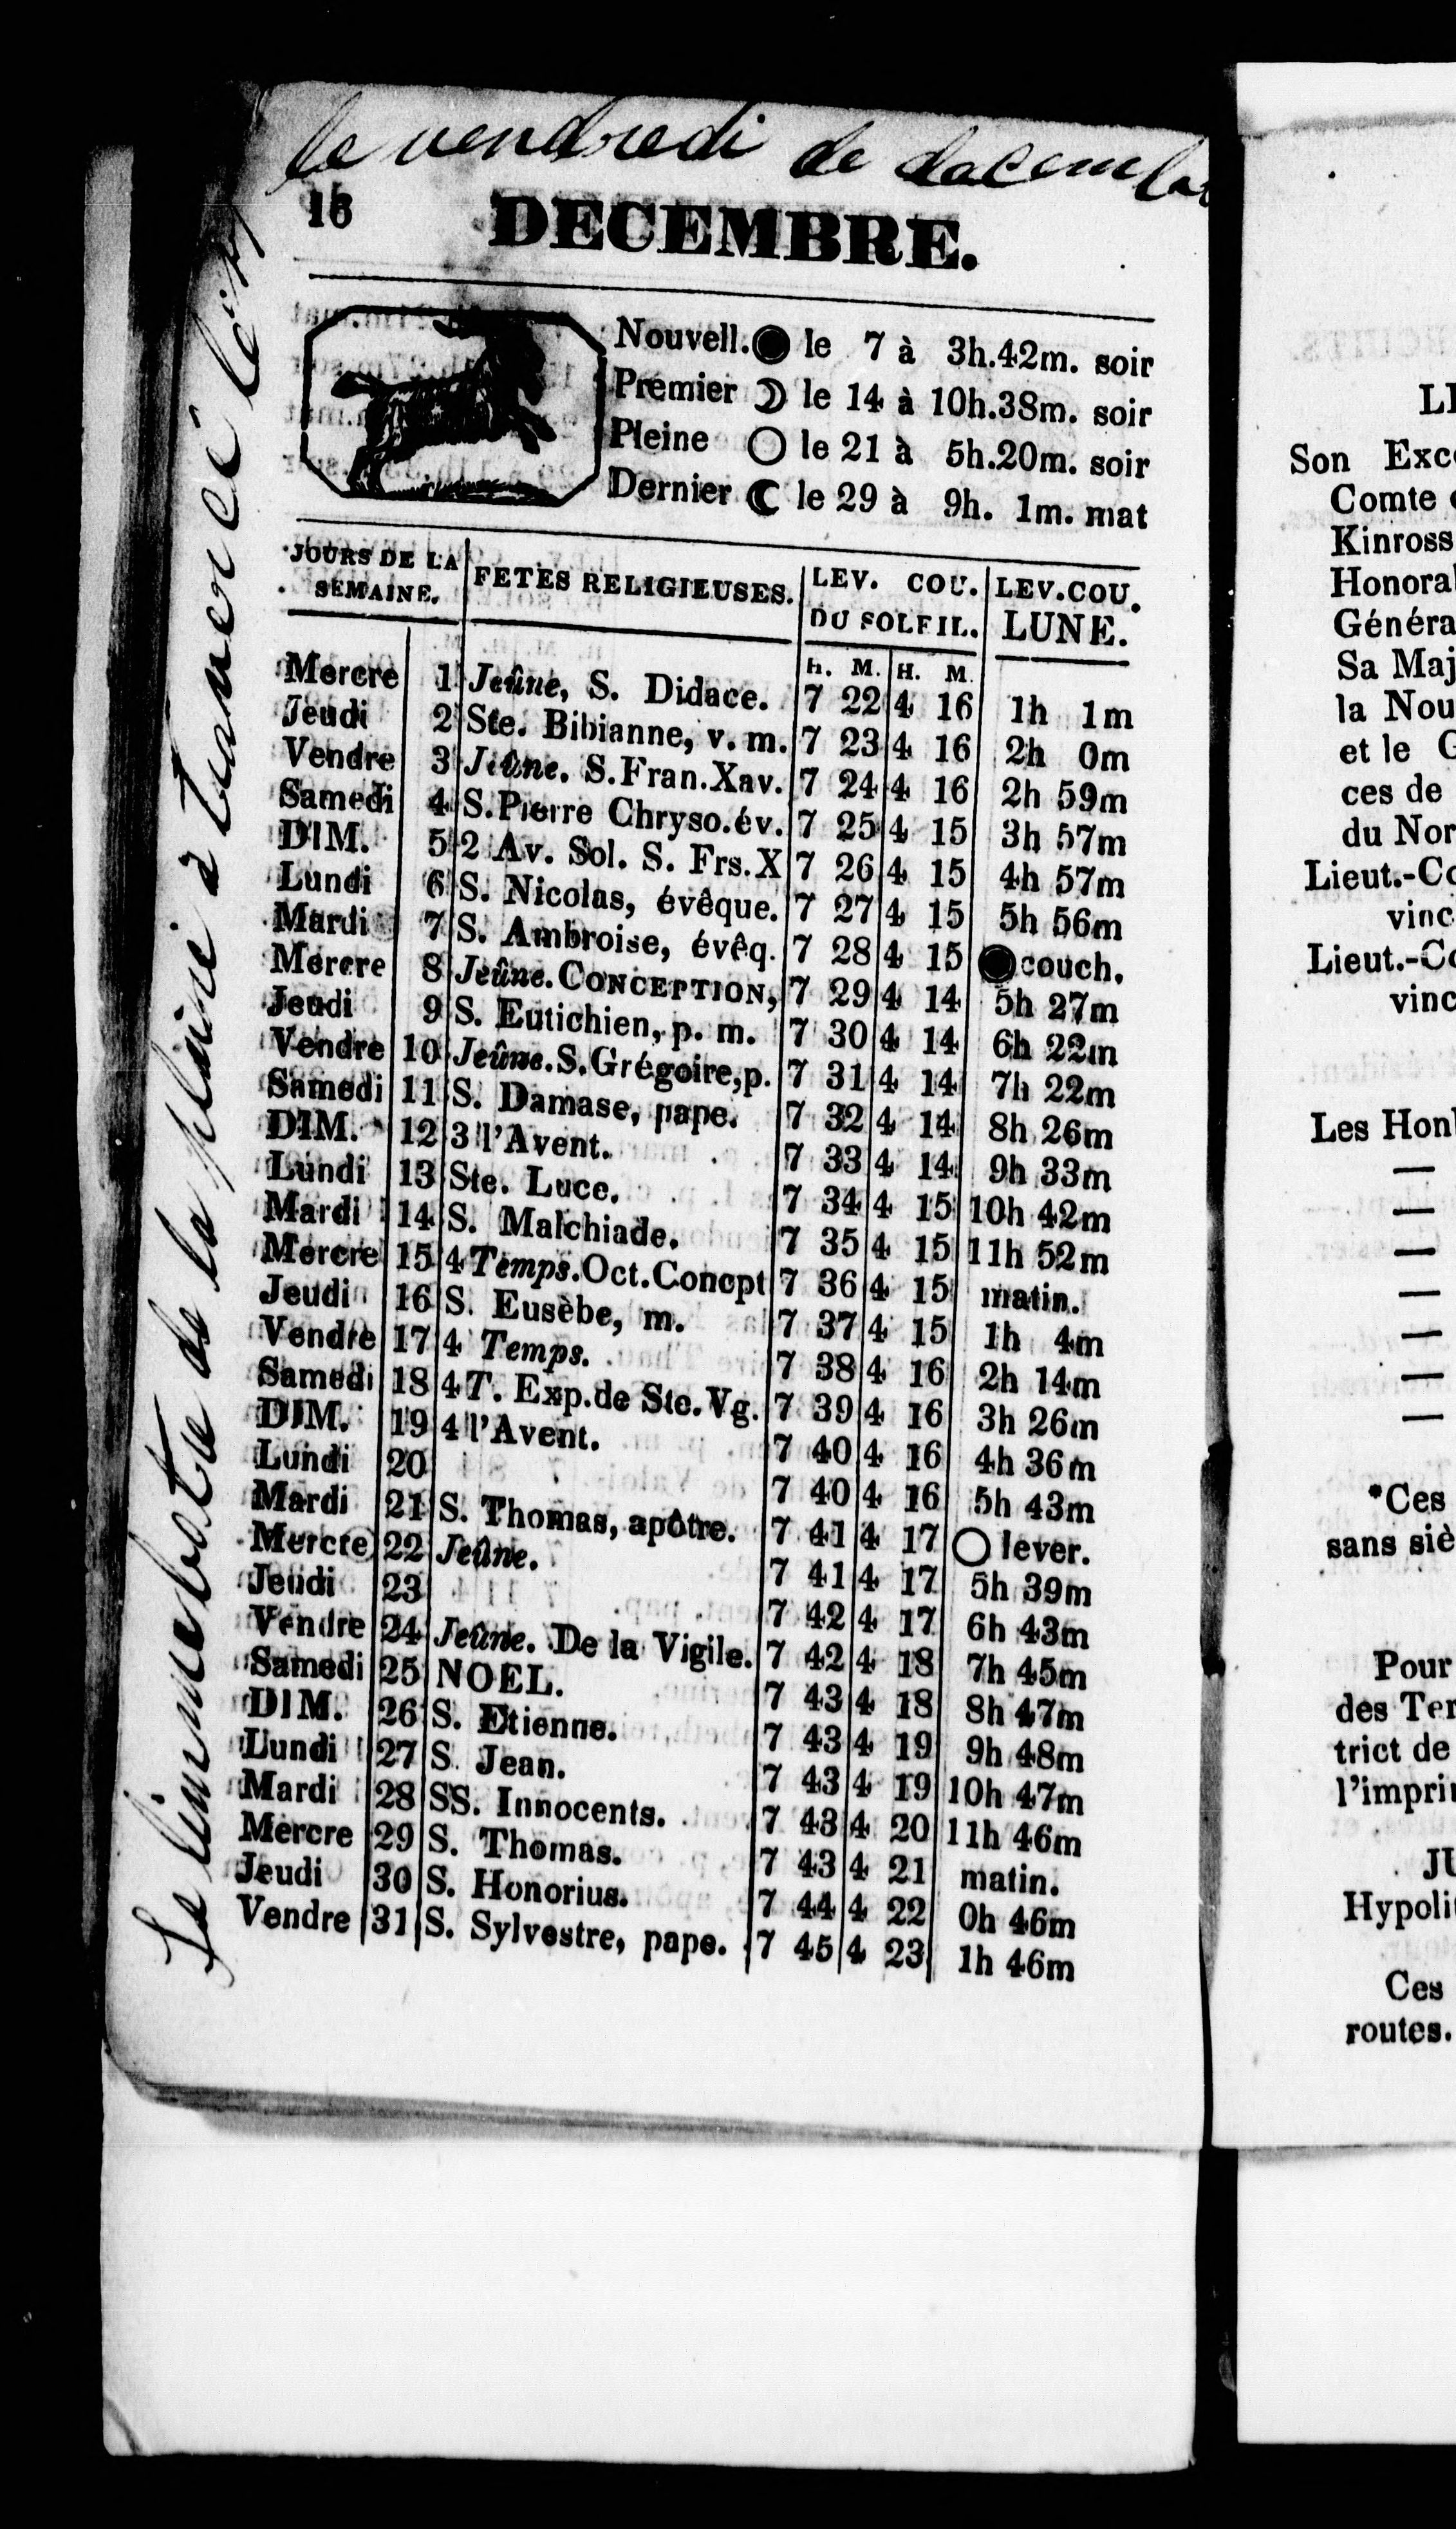 le vendredi de dacembre
16
DECEMBRE.
Nouvell. ● le 7 à 3h.42m. soir
Premier ☽ le 14 à 10h.38m. soir
Pleine ○ le 21 à 5h.20m. soir
Dernier ☾ le 29 à 9h. 1m. mat
JOURS DE LA SEMAINE. FETES RELIGIEUSES. LEV. COU. DU SOLEIL. LEV.COU. LUNE.
H. M. H. M.
Mercre 1 Jeûne, S. Didace. 7 22 4 16 1h 1m
Jeudi 2 Ste. Bibianne, v. m. 7 23 4 16 2h 0m
Vendre 3 Jeûne. S.Fran.Xav. 7 24 4 16 2h 59m
Samedi 4 S.Pierre Chryso.év. 7 25 4 15 3h 57m
DIM. 5 2 Av. Sol. S. Frs.X 7 26 4 15 4h 57m
Lundi 6 S. Nicolas, évêque. 7 27 4 15 5h 56m
Mardi 7 S. Ambroise, évêq. 7 28 4 15 ● couch.
Mercre 8 Jeûne. CONCEPTION, 7 29 4 14 5h 27m
Jeudi 9 S. Eutichien, p. m. 7 30 4 14 6h 22m
Vendre 10 Jeûne.S.Grégoire,p. 7 31 4 14 7h 22m
Samedi 11 S. Damase, pape. 7 32 4 14 8h 26m
DIM. 12 3 l'Avent. 7 33 4 14 9h 33m
Lundi 13 Ste. Luce. 7 34 4 15 10h 42m
Mardi 14 S. Malchiade. 7 35 4 15 11h 52m
Mercre 15 4 Temps.Oct.Concpt 7 36 4 15 matin.
Jeudi 16 S. Eusèbe, m. 7 37 4 15 1h 4m
Vendre 17 4 Temps. 7 38 4 16 2h 14m
Samedi 18 4 T. Exp.de Ste.Vg. 7 39 4 16 3h 26m
DIM. 19 4 l'Avent. 7 40 4 16 4h 36m
Lundi 20 7 40 4 16 5h 43m
Mardi 21 S. Thomas, apôtre. 7 41 4 17 ○ lever.
Mercre 22 Jeûne. 7 41 4 17 5h 39m
Jeudi 23 7 42 4 17 6h 43m
Vendre 24 Jeûne. De la Vigile. 7 42 4 18 7h 45m
Samedi 25 NOEL. 7 43 4 18 8h 47m
DIM. 26 S. Etienne. 7 43 4 19 9h 48m
Lundi 27 S. Jean. 7 43 4 19 10h 47m
Mardi 28 SS. Innocents. 7 43 4 20 11h 46m
Mercre 29 S. Thomas. 7 43 4 21 matin.
Jeudi 30 S. Honorius. 7 44 4 22 0h 46m
Vendre 31 S. Sylvestre, pape. 7 45 4 23 1h 46m
de la
Son Exc
Comte
Kinross
Honora
Généra
Sa Maj
la Nou
et le
ces de
du Nor
Lieut.-Co
vinc
Lieut.-Co
vinc
Les Hon
—
—
—
—
—
—
—
*Ces
sans siè
Pour
des Ter
trict de
l'impri
JU
Hypolit
Ces
routes.